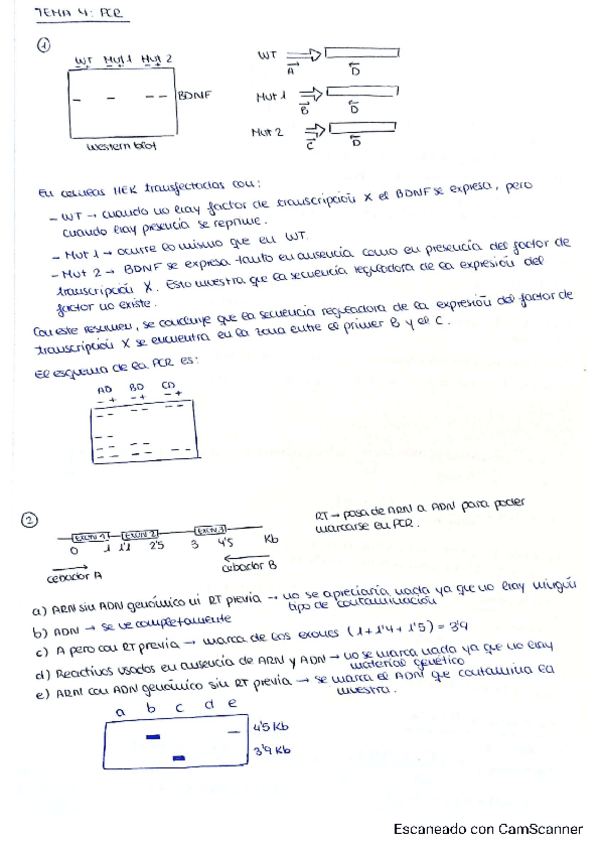 TEMA 4: PCR
1
WT Mut 1 Mut 2
- + - + - +
BDNF
Western blot
WT
A D
Mut 1
B D
Mut 2
C D
En celulas HEK transfectadas con:
- WT → cuando no hay factor de transcripción X el BDNF se expresa, pero
cuando hay presencia se reprime.
- Mut 1 → ocurre lo mismo que en WT.
- Mut 2 → BDNF se expresa tanto en ausencia como en presencia del factor de
transcripción X. Esto muestra que la secuencia reguladora de la expresión del
factor no existe.
Con este resumen, se concluye que la secuencia reguladora de la expresión del factor de
transcripción X se encuentra en la zona entre el primer B y el C.
El esquema de la PCR es:
AD BD CD
- + - + - +
2
EXON 1 EXON 2 EXON 3
0 1 1'1 2'5 3 4'5 Kb
cebador A
cebador B
RT → pasa de ARN a ADN para poder
marcarse en PCR.
a) ARN sin ADN genómico ni RT previa → no se apreciaría nada ya que no hay ningún
tipo de contaminación
b) ADN → se ve completamente
c) A pero con RT previa → marca de los exones (1 + 1'4 + 1'5) = 3'9
d) Reactivos usados en ausencia de ARN y ADN → no se marca nada ya que no hay
material genético
e) ARN con ADN genómico sin RT previa → se marca el ADN que contamina la
muestra.
a b c d e
4'5 Kb
3'9 Kb
Escaneado con CamScanner